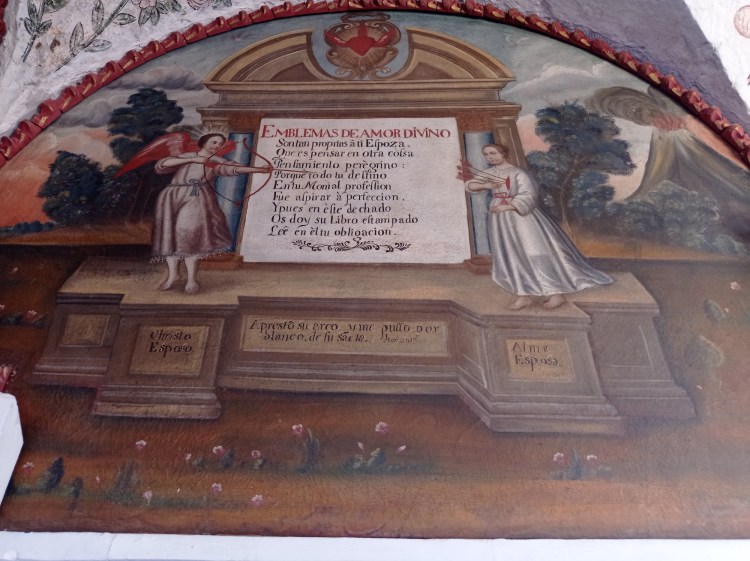 EMBLEMAS DE AMOR DIVINO
Son tan propias á ti Espoza.
Que es pensar en otra coisa
Pensamiento peregrino:
Porque to do tu destino
En tu Monial profession
Fue aspirar à perfeccion.
Y pues en este dechado
Os doy su Libro estampado
Leè en èl tu obligacion.
Apresto su arco y me puso por
blanco, de su Saeta.
Christo
Esposo.
Alma
Esposa.